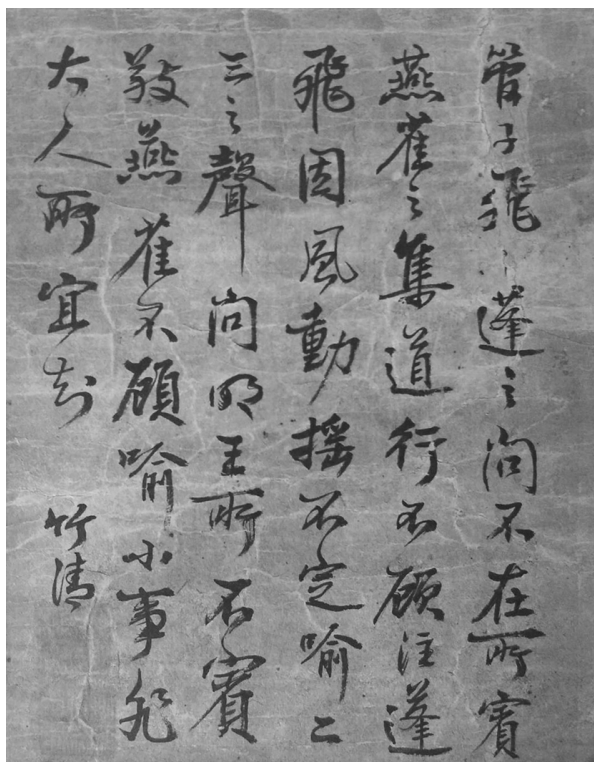 管子飛蓬之問不在所賓
燕雀之集道行不顧注蓬
飛因風動搖不定喻二
三之聲問明王所不賓
敬燕雀不顧喻小事非
大人所宜知 竹清